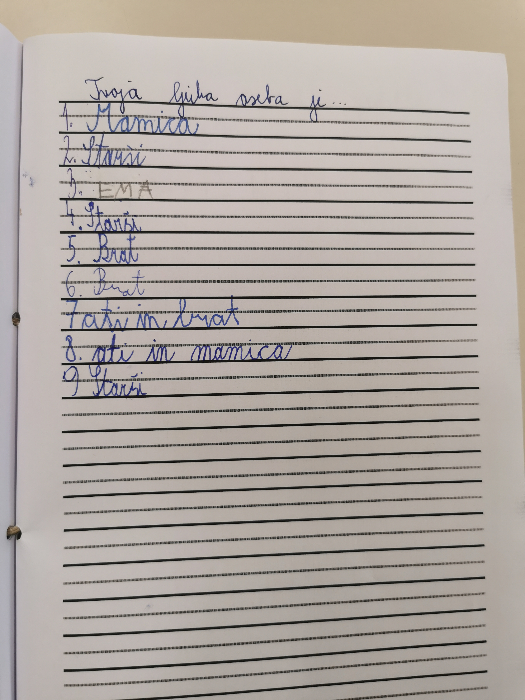 Tvoja ljuba oseba je...
1. Mamica
2. Starši
3. EMA
4. Starši
5. Brat
6. Brat
7 ati in brat
8. ati in mamica
9 Starši